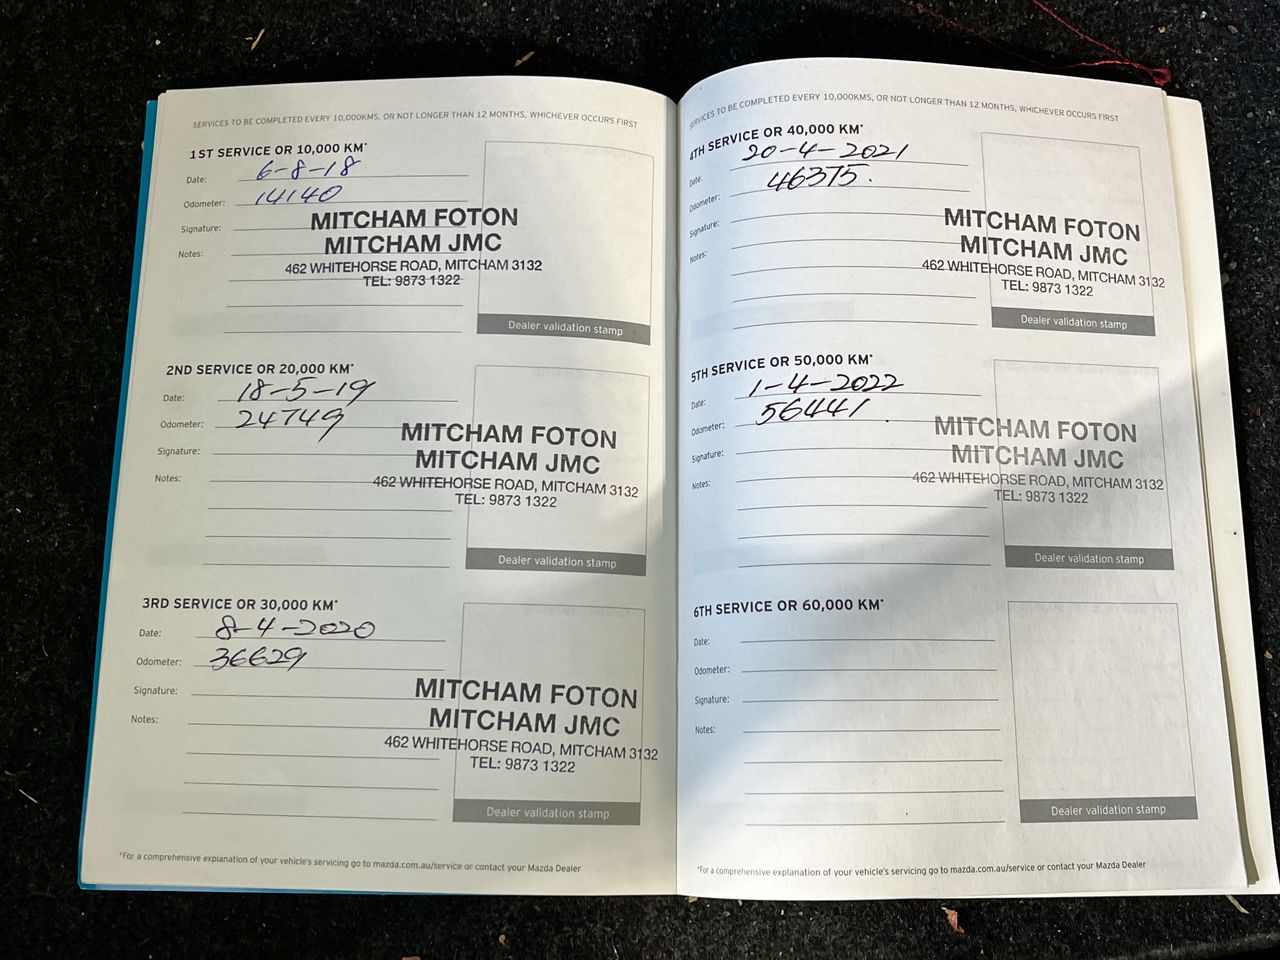 SERVICES TO BE COMPLETED EVERY 10,000KMS, OR NOT LONGER THAN 12 MONTHS, WHICHEVER OCCURS FIRST
1ST SERVICE OR 10,000 KM*
Date: 6-8-18
Odometer: 14140
Signature:
Notes:
MITCHAM FOTON
MITCHAM JMC
462 WHITEHORSE ROAD, MITCHAM 3132
TEL: 9873 1322
Dealer validation stamp
2ND SERVICE OR 20,000 KM*
Date: 18-5-19
Odometer: 24749
Signature:
Notes:
MITCHAM FOTON
MITCHAM JMC
462 WHITEHORSE ROAD, MITCHAM 3132
TEL: 9873 1322
Dealer validation stamp
3RD SERVICE OR 30,000 KM*
Date: 8-4-2020
Odometer: 36629
Signature:
Notes:
MITCHAM FOTON
MITCHAM JMC
462 WHITEHORSE ROAD, MITCHAM 3132
TEL: 9873 1322
Dealer validation stamp
*For a comprehensive explanation of your vehicle's servicing go to mazda.com.au/service or contact your Mazda Dealer
SERVICES TO BE COMPLETED EVERY 10,000KMS, OR NOT LONGER THAN 12 MONTHS, WHICHEVER OCCURS FIRST
4TH SERVICE OR 40,000 KM*
Date: 20-4-2021
Odometer: 46375.
Signature:
Notes:
MITCHAM FOTON
MITCHAM JMC
462 WHITEHORSE ROAD, MITCHAM 3132
TEL: 9873 1322
Dealer validation stamp
5TH SERVICE OR 50,000 KM*
Date: 1-4-2022
Odometer: 56441
Signature:
Notes:
MITCHAM FOTON
MITCHAM JMC
462 WHITEHORSE ROAD, MITCHAM 3132
TEL: 9873 1322
Dealer validation stamp
6TH SERVICE OR 60,000 KM*
Date:
Odometer:
Signature:
Notes:
Dealer validation stamp
*For a comprehensive explanation of your vehicle's servicing go to mazda.com.au/service or contact your Mazda Dealer